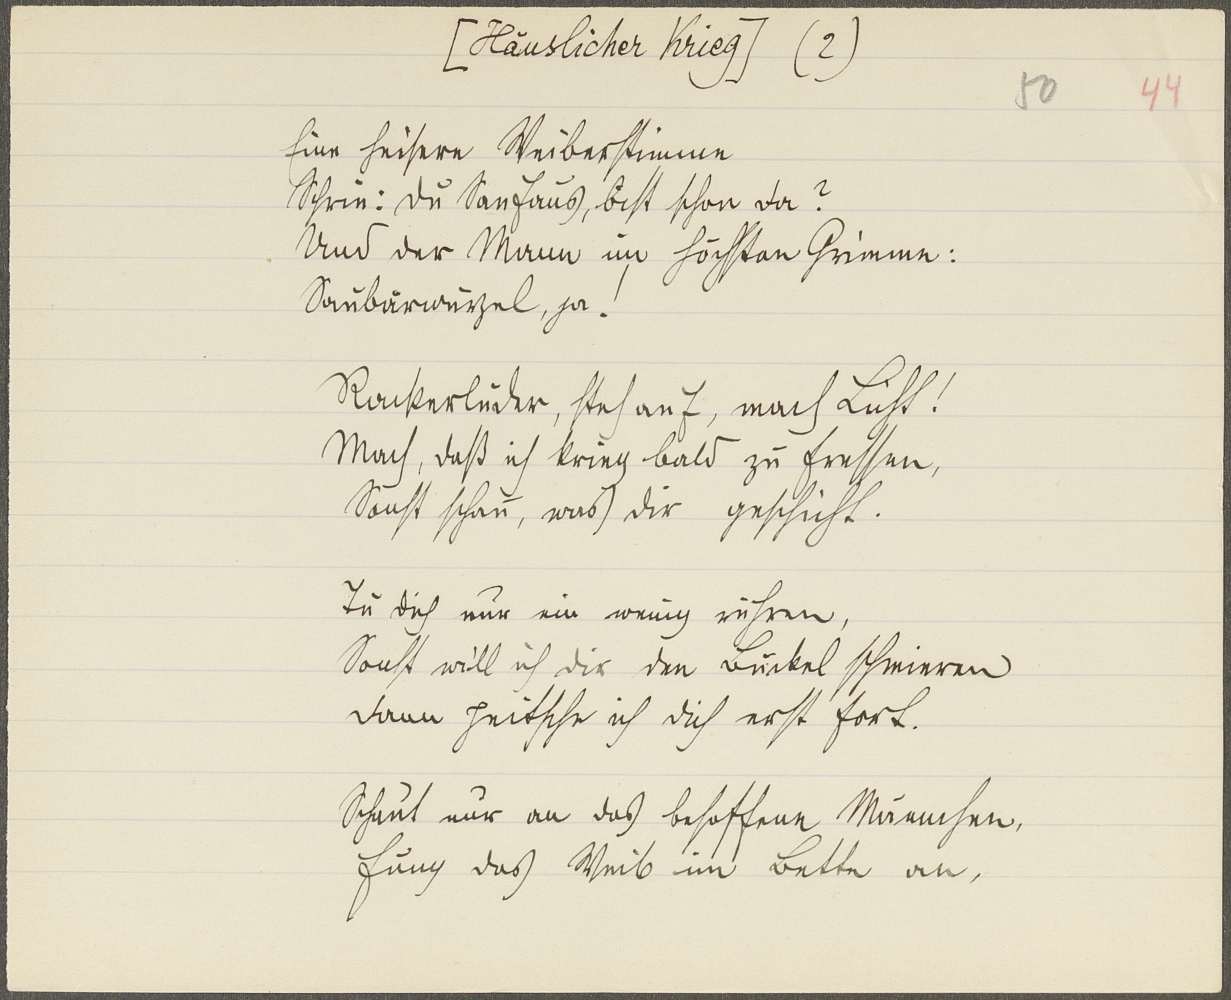 [Häuslicher Krieg] (2)
50 44
Eine heisere Weiberstimme
Schrie: du Saufaus, bist schon da?
Und der Mann im höchsten Grimme:
Saubärwurzel, ja!
Rackerluder, steh auf, mach Licht!
Mach, daß ich krieg bald zu fressen,
Sonst schau, was dir geschicht.
Tu dich nur ein wenig rühren,
Sonst will ich dir den Buckel schmieren
dann peitsche ich dich erst fort.
Schaut nur an das besoffene Männchen,
fung das Weib im Bette an,